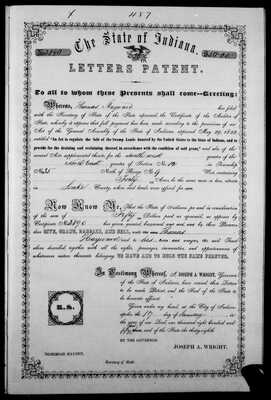 The State of Indiana.
LETTERS PATENT.
To all to whom these Presents shall come—Greeting:
Whereas, Thomas Maynard has filed
with the Secretary of State of the State aforesaid the Certificate of the Auditor of
State, whereby it appears that full payment has been made according to the provisions of an
Act of the General Assembly of the State of Indiana, approved May 29, 1852,
entitled "An Act to regulate the Sale of the Swamp Lands donated by the United States to the State of Indiana, and to
provide for the draining and reclaiming thereof, in accordance with the condition of said grant," and also of the
several Acts supplemental thereto for the quarter of the
quarter of Section No. in Township
No. North of Range No. 9 West containing
Forty Acres, be the same more or less, situate
in County, when said lands were offered for sale.
Now Know Ye, That the State of Indiana
of the sum of Fifty Dollars paid as aforesaid, as appears by
Certificate No. has given, granted, bargained and sold, and by these Presents
does GIVE, GRANT, BARGAIN, AND SELL, unto the said Thomas
Maynard and to heirs and assigns, the said Tract
above described together with all the rights, privileges, immunities, and appurtenances of
whatsoever nature thereunto belonging TO HAVE AND TO HOLD THE SAME FOREVER.
In Testimony Whereof, I, JOSEPH A. WRIGHT, Governor
of the State of Indiana, have caused these Letters
to be made Patent, and the Seal of the State to
be hereunto affixed.
Given under my hand, at the City of Indianapolis
the 17 day of January in
the year of our Lord, one thousand eight hundred and
and of the State the thirty-eighth
L. S.
BY THE GOVERNOR
JOSEPH A. WRIGHT.
Secretary of State